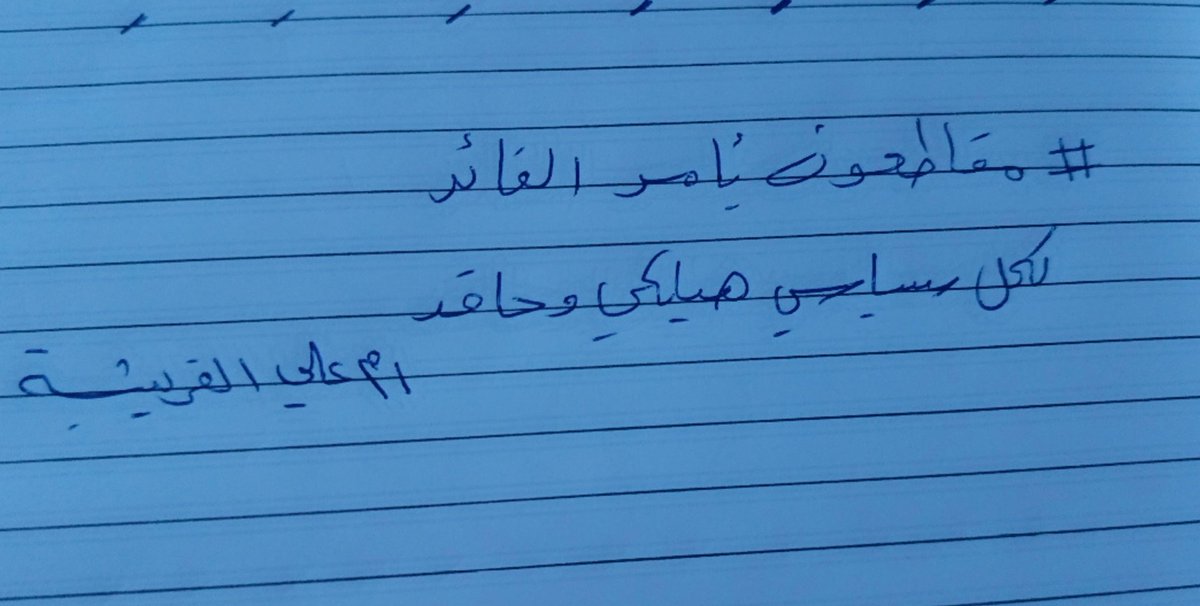 # مقاطعون بامر القائد
لكل سياسي هيلكي وحاقد
ام علي القريشية